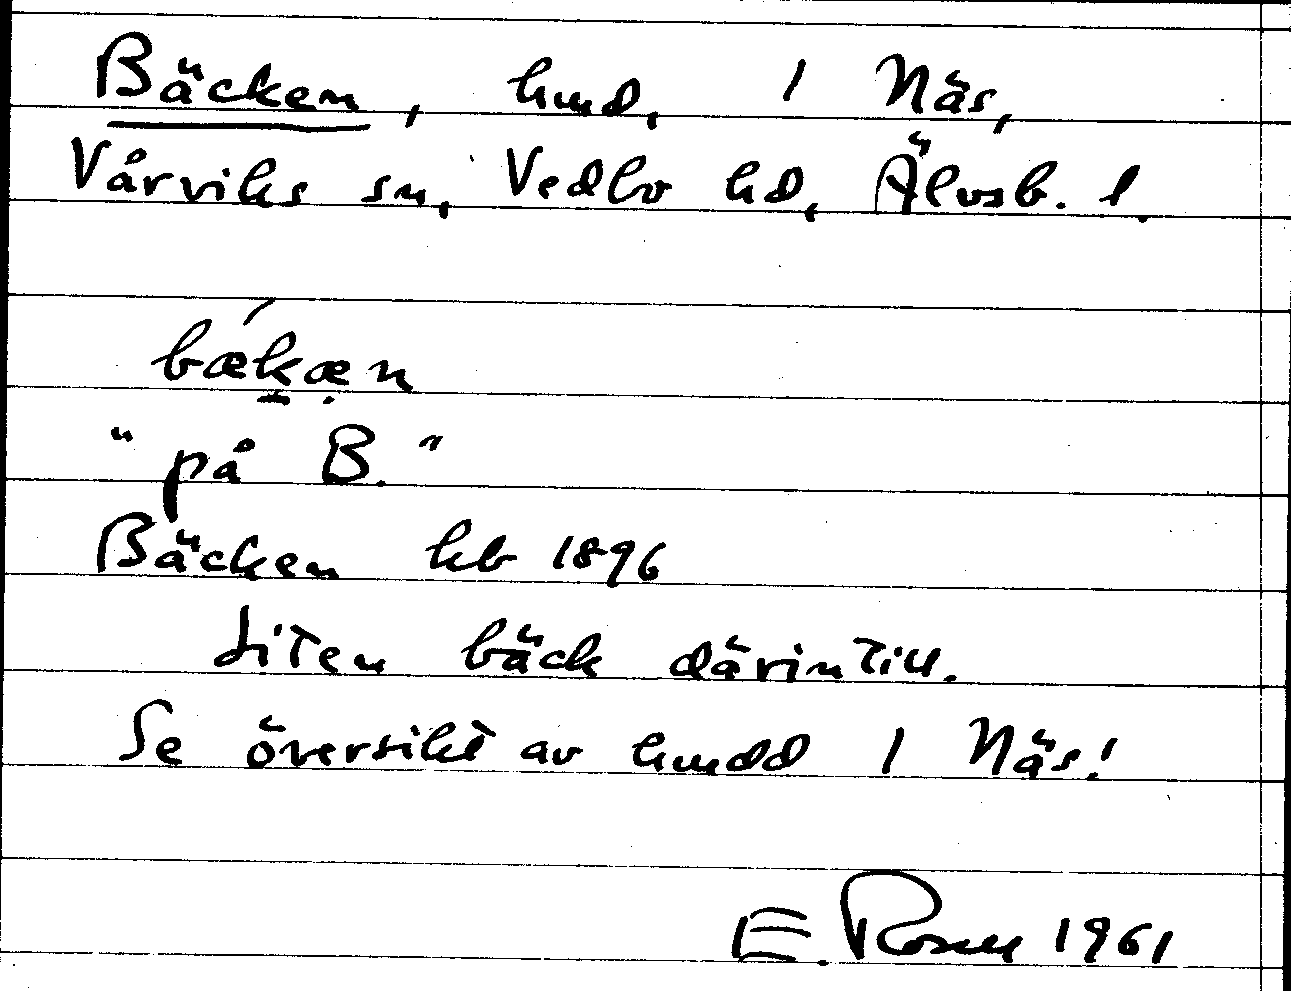 Bäcken, hmd, 1 Näs,
Vårviks sn, Vedbo hd, Älvsb. l.
bækæn
"på B."
Bäcken hb 1896
Liten bäck därintill.
Se översikt av hmdd 1 Näs!
E. Rosell 1961